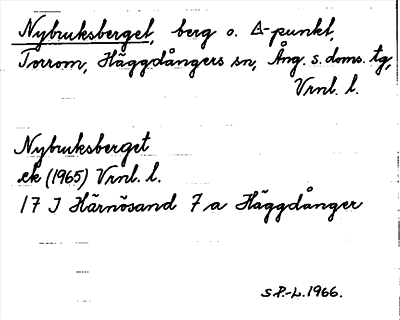 Nybruksberget, berg o. Δ-punkt,
Torrom, Häggdångers sn, Ång. s. doms. tg,
Vrnl. l.
Nybruksberget
ek (1965) Vrnl. l.
17 J Härnösand 7 a Häggdånger
S.P.-L. 1966.